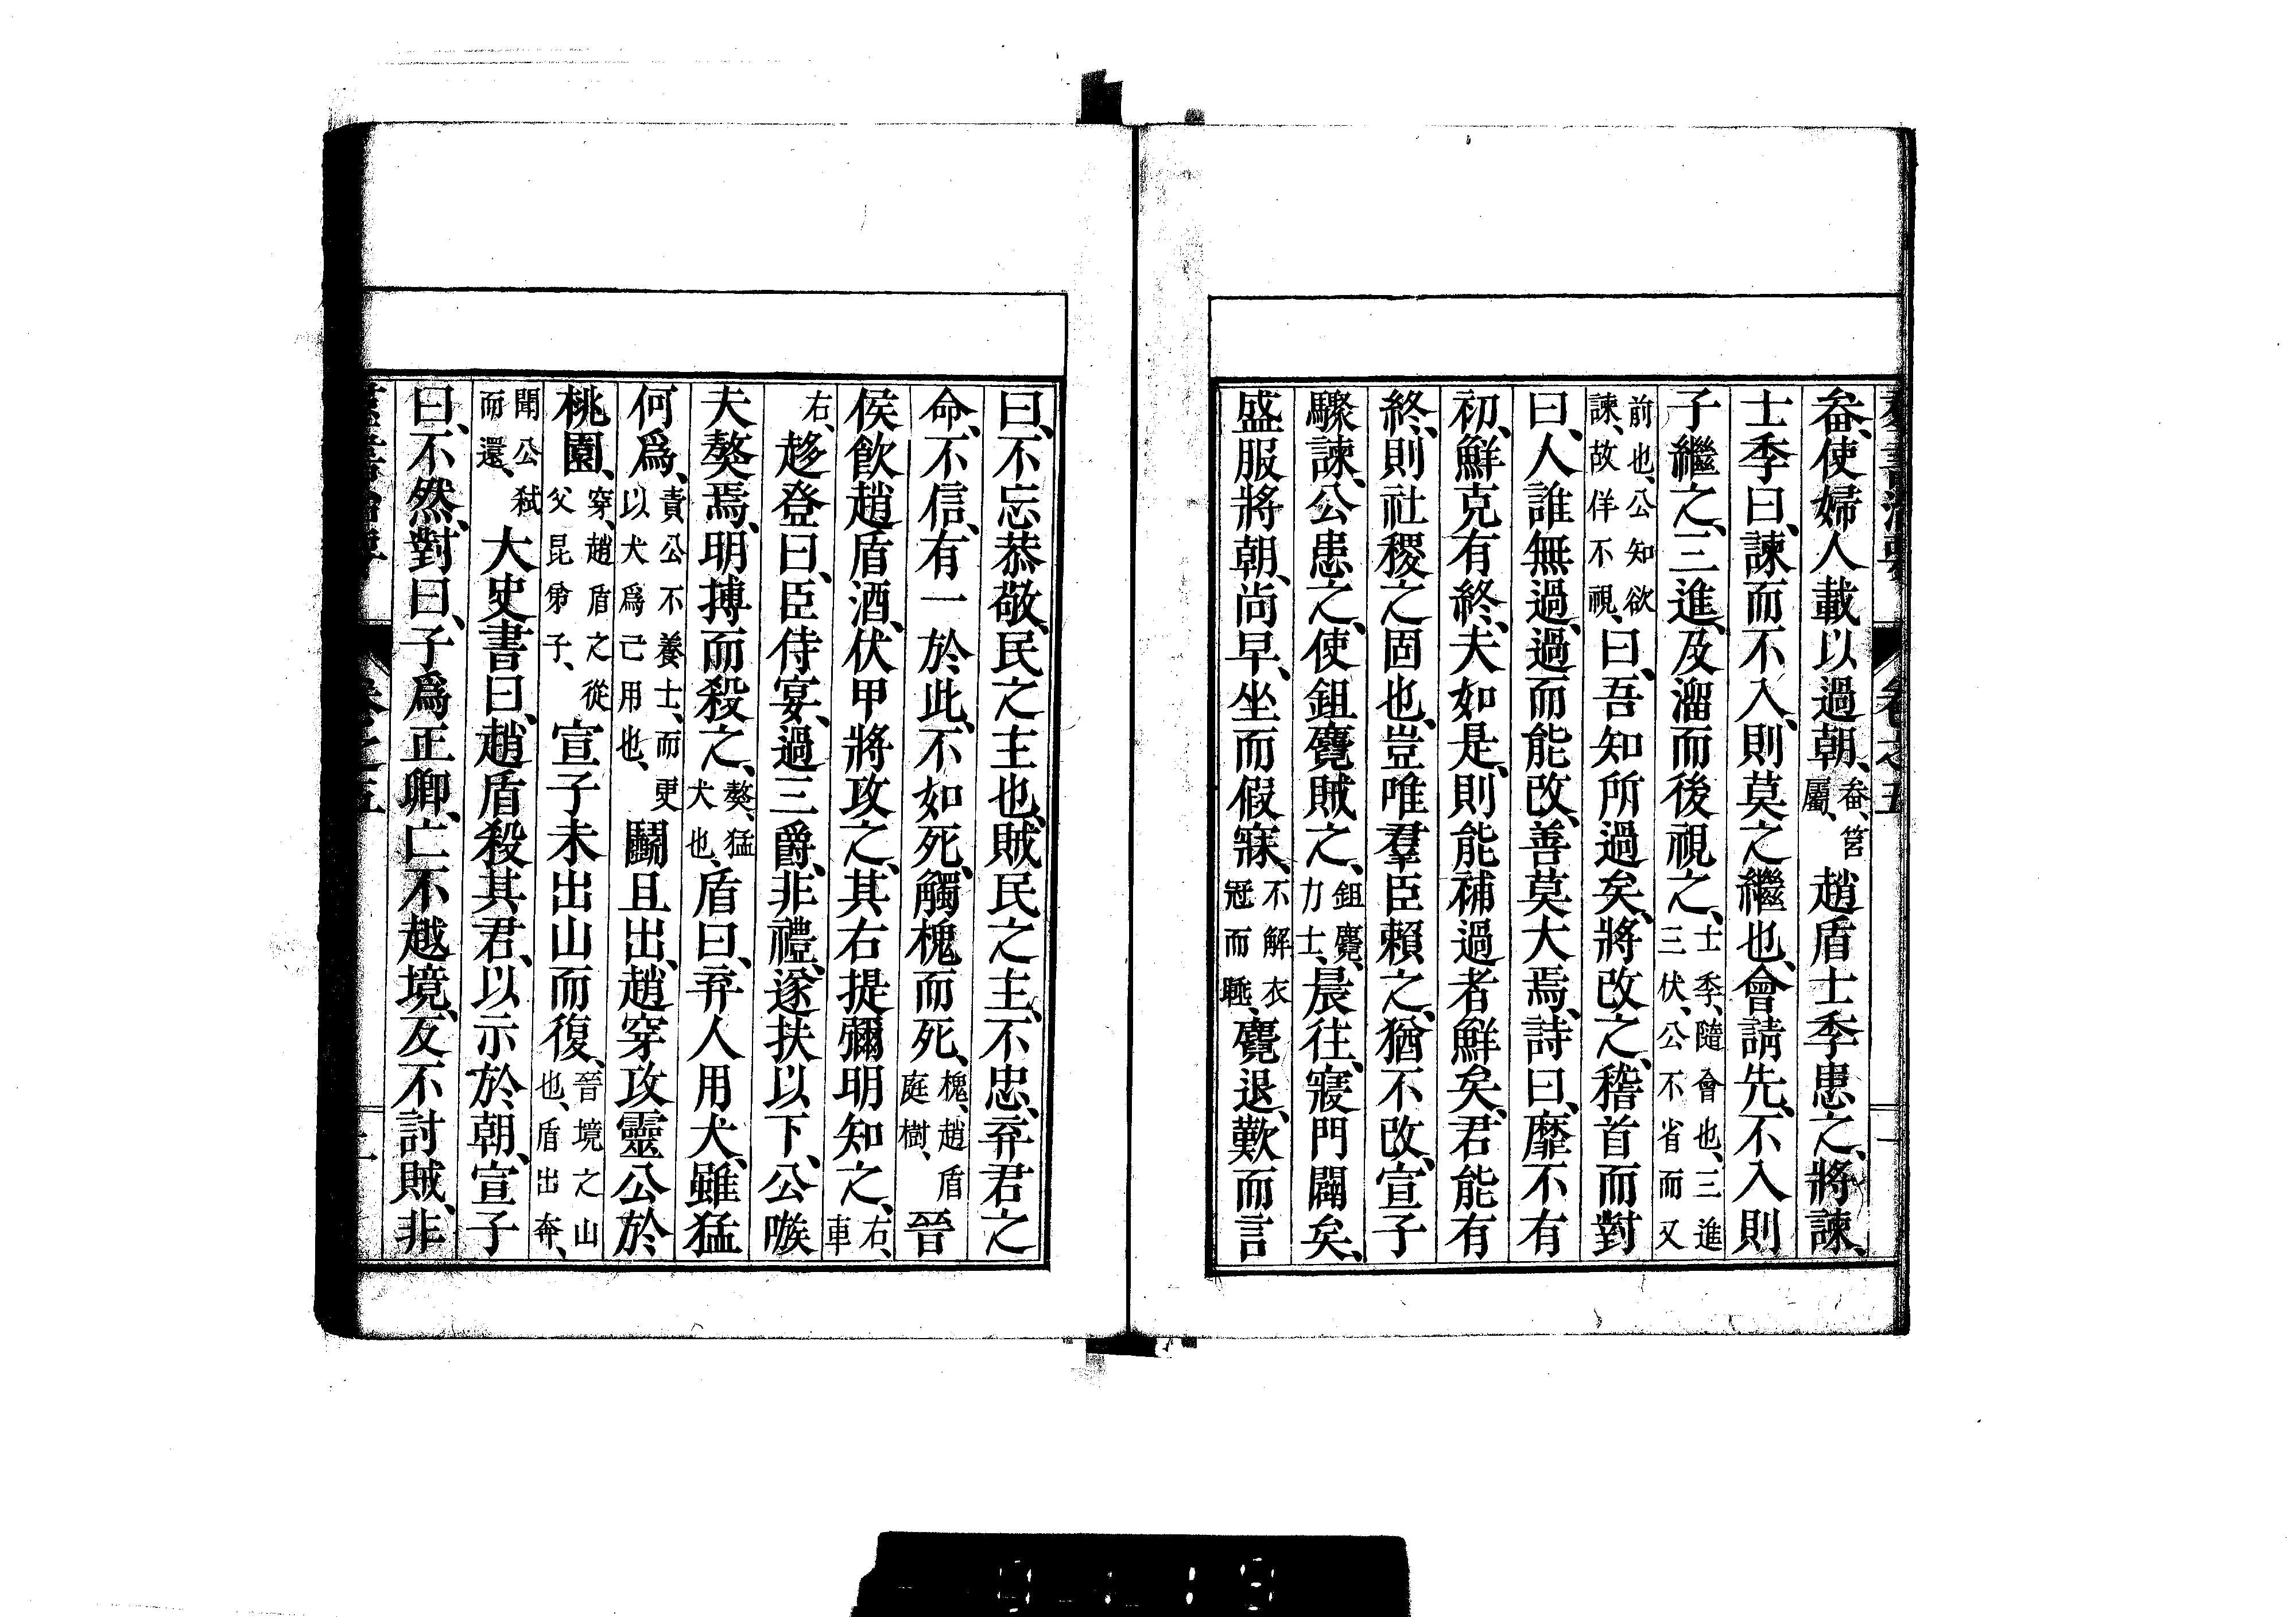 畚、使婦人載以過朝、畚、筥屬、趙盾士季患之、將諫、
士季曰、諫而不入、則莫之繼也、會請先、不入則
子繼之、三進、及溜而後視之、士季、隨會也、三進三伏、公不省而又
前也、公知欲諫、故佯不視、曰、吾知所過矣、將改之、稽首而對
曰、人誰無過、過而能改、善莫大焉、詩曰、靡不有
初、鮮克有終、夫如是、則能補過者鮮矣、君能有
終、則社稷之固也、豈唯羣臣賴之、猶不改、宣子
驟諫、公患之、使鉏麑賊之、鉏麑、力士、晨往、寢門闢矣、
盛服將朝、尚早、坐而假寐、不解衣冠而睡、麑退、歎而言
曰、不忘恭敬、民之主也、賊民之主、不忠、弃君之
命、不信、有一於此、不如死、觸槐而死、槐、趙盾庭樹、晉
侯飮趙盾酒、伏甲將攻之、其右提彌明知之、右、車
右、趍登曰、臣侍宴、過三爵、非禮、遂扶以下、公嗾
夫獒焉、明搏而殺之、獒、猛犬也、盾曰、弃人用犬、雖猛
何爲、責公不養士、而更以犬爲己用也、鬭且出、趙穿攻靈公於
桃園、穿、趙盾之從父昆弟子、宣子未出山而復、晉境之山也、盾出奔、
聞公弑而還、大史書曰、趙盾殺其君、以示於朝、宣子
曰、不然、對曰、子爲正卿、亡不越境、反不討賊、非
卷之五